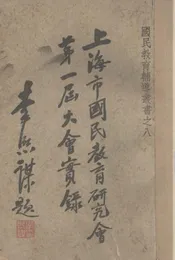 國民教育輔導叢書之八
上海市國民教育研究會
第一屆大會實錄
李熙謀題